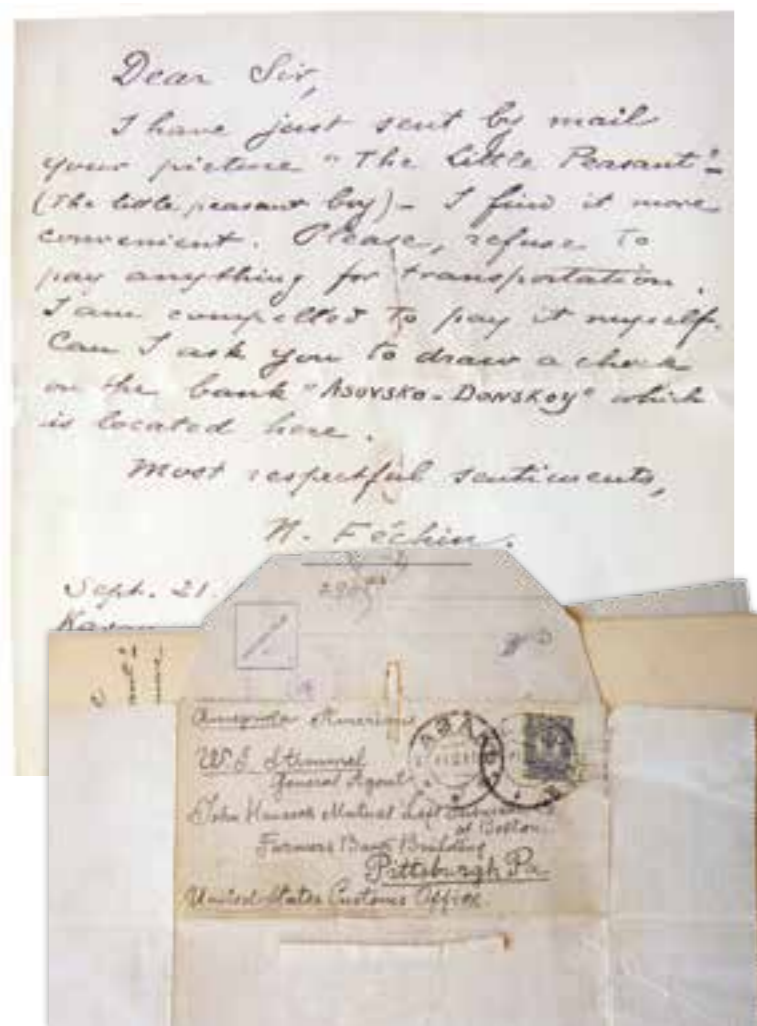 Dear Sir,
I have just sent by mail
your picture "The Little Peasant"-
(The little peasant boy) - I find it more
convenient. Please, refuse to
pay anything for transportation.
I am compelled to pay it myself.
Can I ask you to draw a check
on the bank "Asovsko-Donskoy" which
is located here.
Most respectful sentiments,
N. Féchin.
Sept. 21.
Kasan
Америка America
W S Stimmel
General Agent
John Hancock Mutual Life
of Boston.
Farmers Bank Building
Pittsburgh Pa.
United States Customs Office.